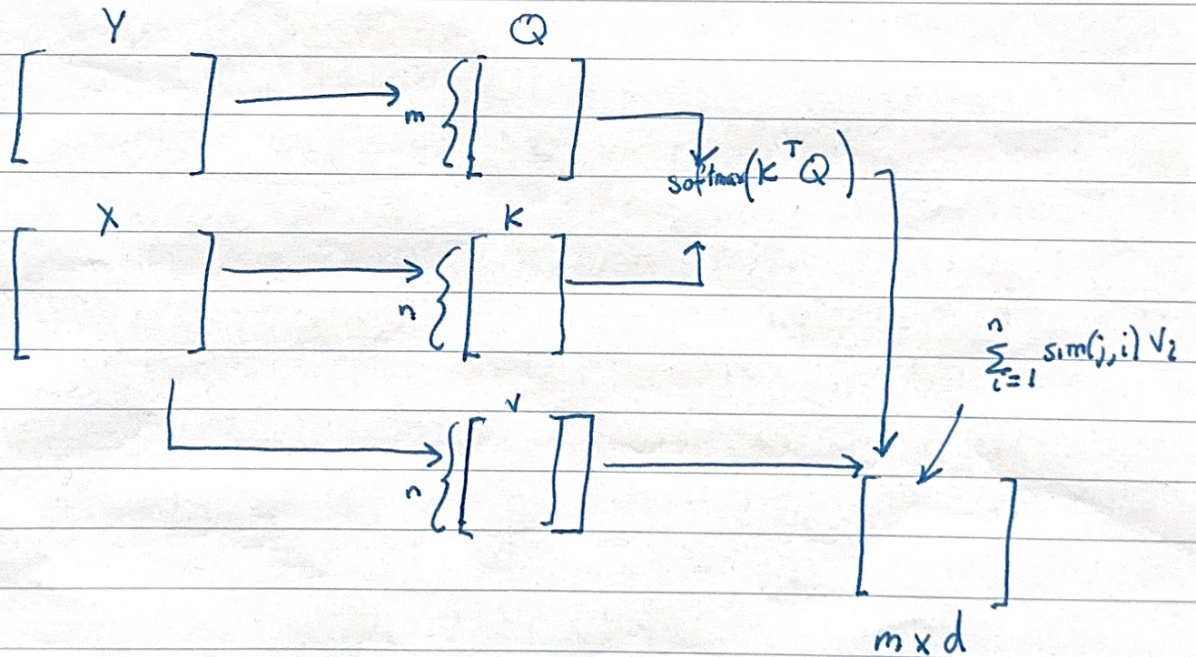 Y
Q
m
softmax(K^T Q)
X
K
n
n
∑ i=1 sim(j,i) V_i
V
n
m x d